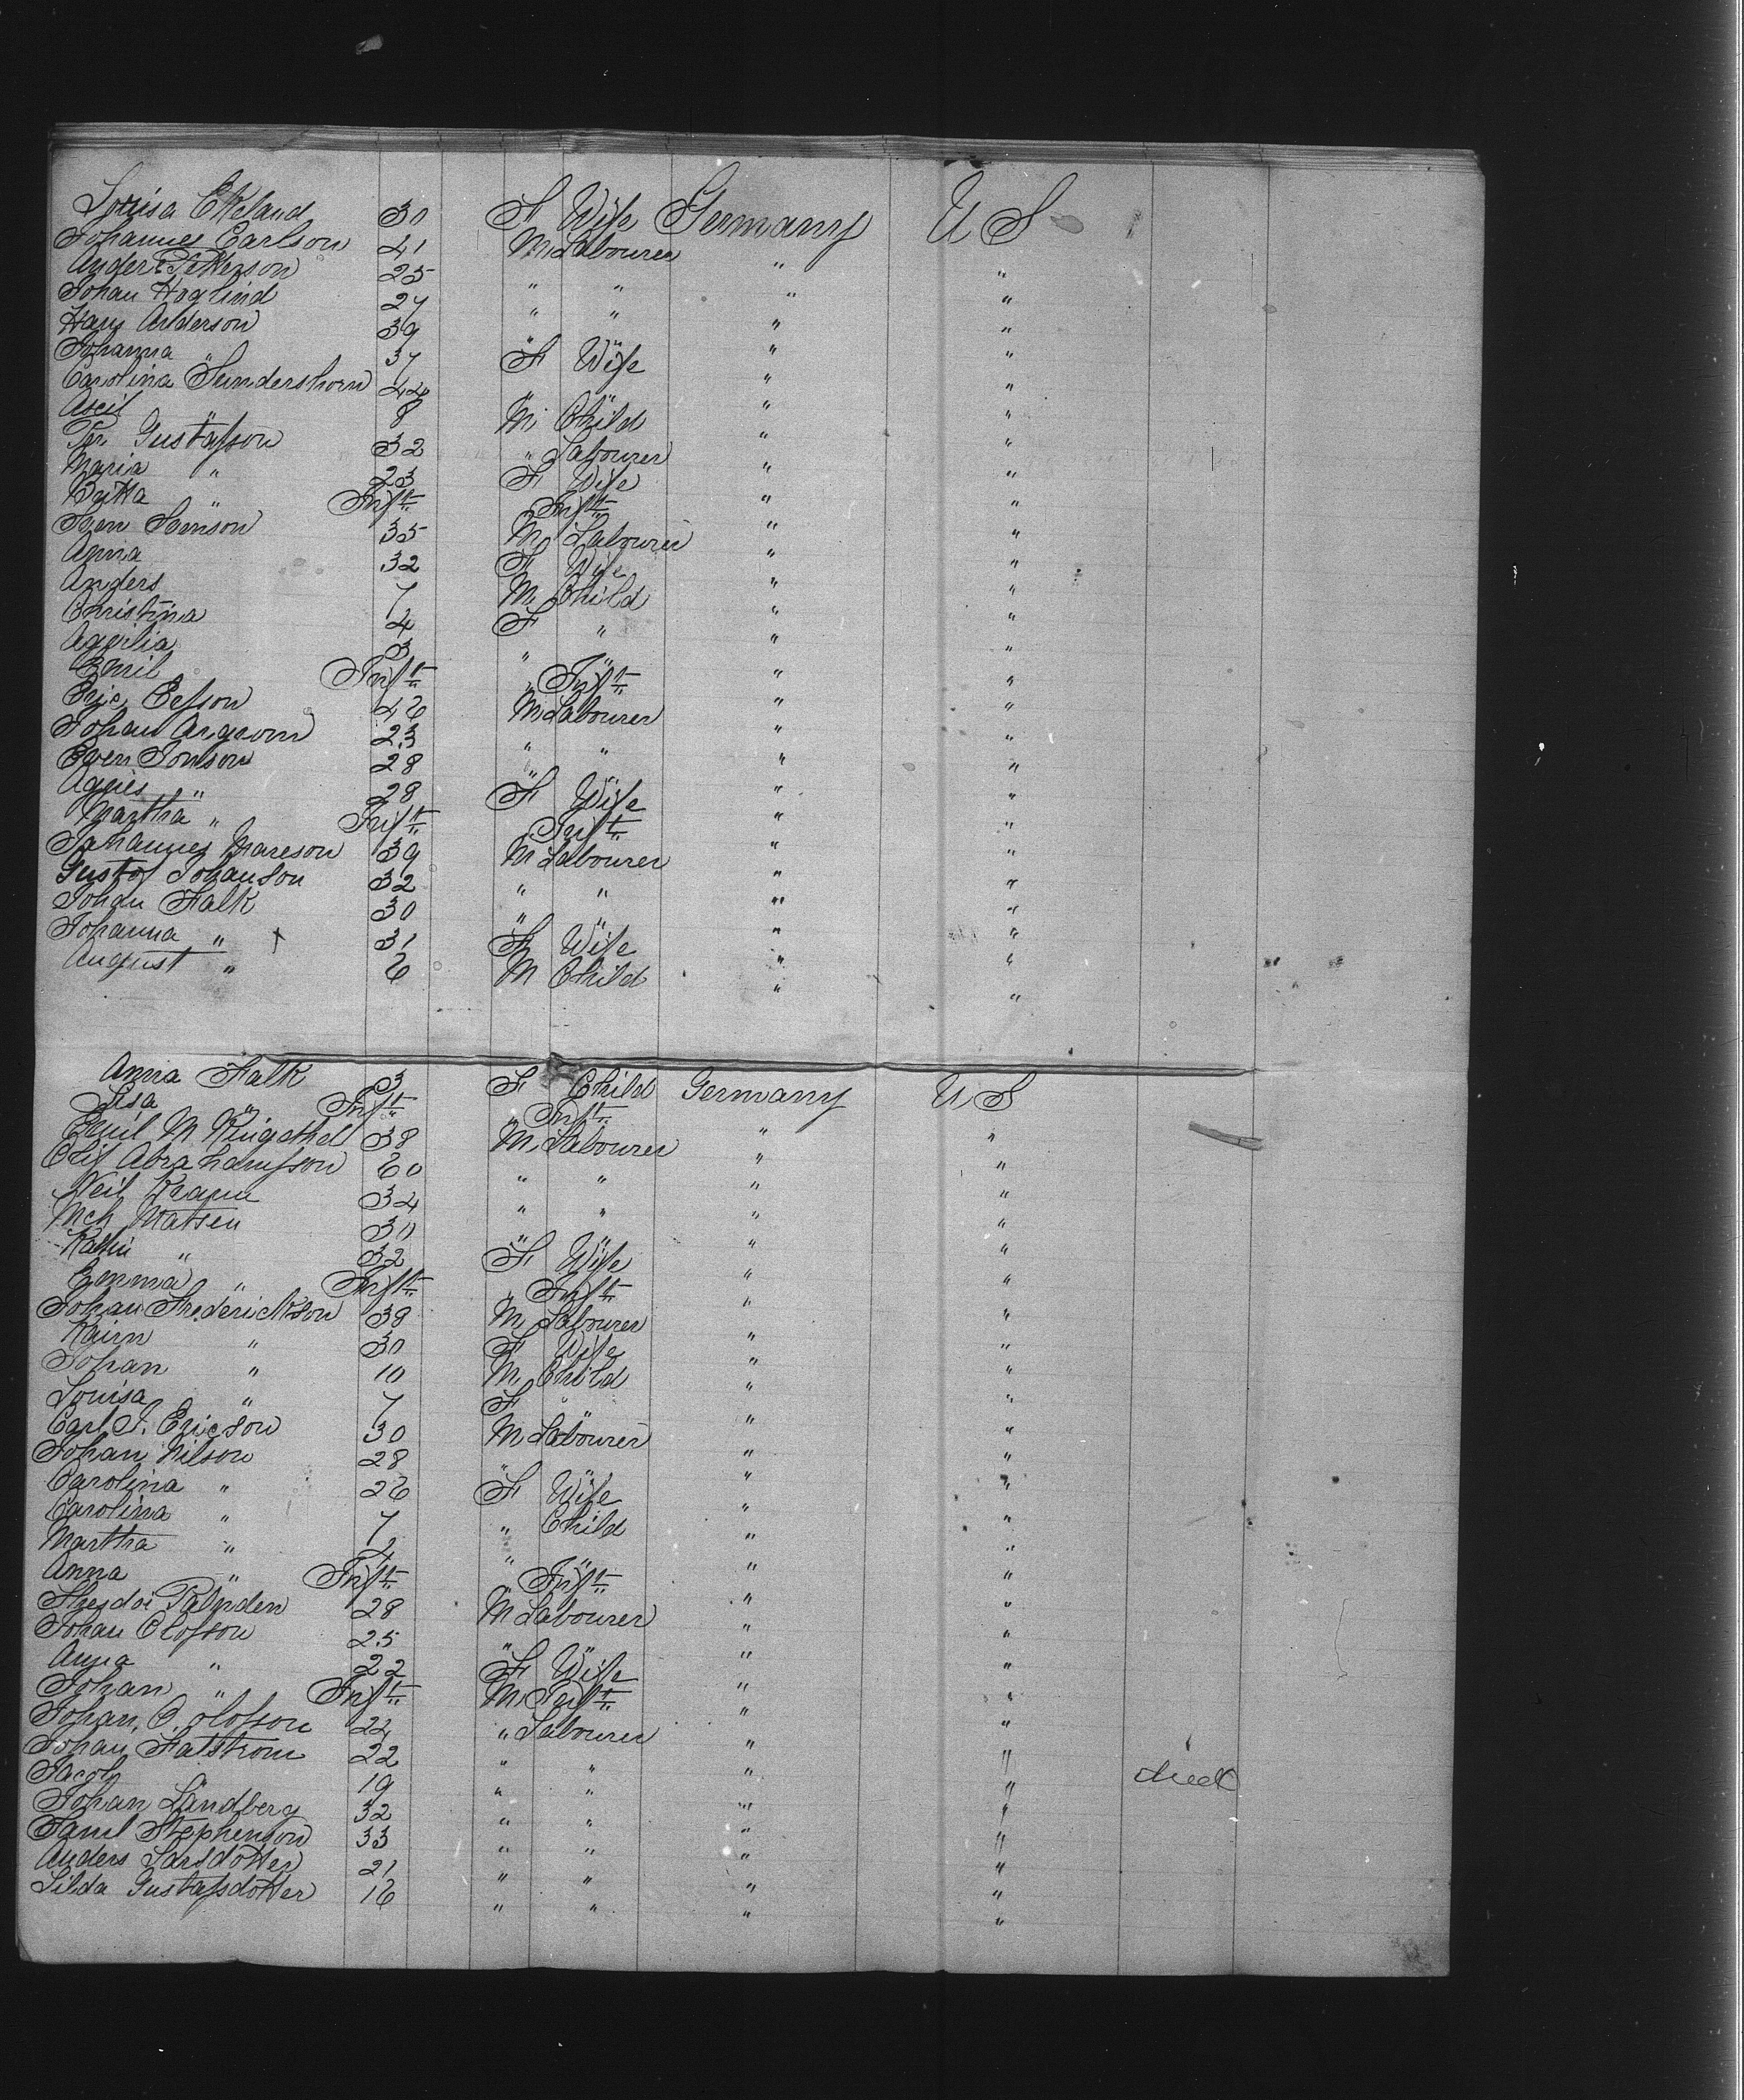 Louisa Ekeland 30 F Wife Germany U S
Johannes Carlson 41 M Labourer " "
Anders Petterson 25 " " " "
Johan Hoglind 27 " " " "
Hans Anderson 39 " " " "
Johanna " 37 F Wife " "
Carolina 44 " " " "
Axil 8 M Child " "
Per Gustafson 32 " Labourer " "
Maria " 23 F Wife " "
Britta " Inft Inft " "
Sven Samson 35 M Labourer " "
Anna 32 F Wife " "
Anders 7 M Child " "
Christina 4 F " " "
3 " " " "
Emil Inft " Inft " "
Eric Ersson 46 M Labourer " "
Johan 23 " " " "
Sven Jonson 28 " " " "
Agnes " 28 F Wife " "
Martha " Inft Inft " "
Johannes Mareson 39 M Labourer " "
Gustof Johanson 32 " " " "
Johan Falk 30 " " " "
Johanna " 31 F Wife " "
August " 6 M Child " "
Anna Falk 3 F Child Germany U S
Lisa " Inft " Inft " "
Emil M 38 M Labourer " "
Olif Abrahamsson 60 " " " "
Neil 34 " " " "
Mch Matsen 30 " " " "
" 32 F Wife " "
Emma " Inft " Inft " "
Johan Frederickson 38 M Labourer " "
Kairn " 30 F Wife " "
Johan " 10 M Child " "
Louisa " 7 F " " "
Carl J. Ericson 30 M Labourer " "
Johan Nilson 28 " " " "
Carolina " 26 F Wife " "
Carolina " 7 " Child " "
Martha " 2 " " " "
Anna " Inft " Inft " "
28 M Labourer " "
Johan Olofson 25 " " " "
Anna " 22 F Wife " "
Johan " Inft M Inft " "
Johan O. Olofson 22 " Labourer " "
Johan 22 " " " "
Jacob 19 " " " "
Johan Landberg 32 " " " "
Saml Stephenson 33 " " " "
Anders Larsdotter 21 " " " "
Lilda Gustafsdotter 16 " " " "